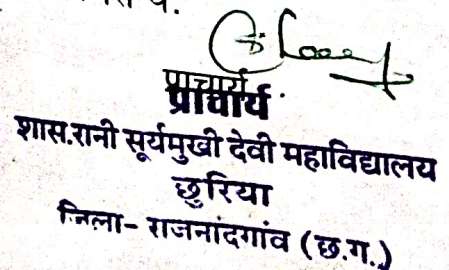 प्राचार्य
प्राचार्य
शास.रानी सूर्यमुखी देवी महाविद्यालय
छुरिया
जिला- राजनांदगांव (छ.ग.)